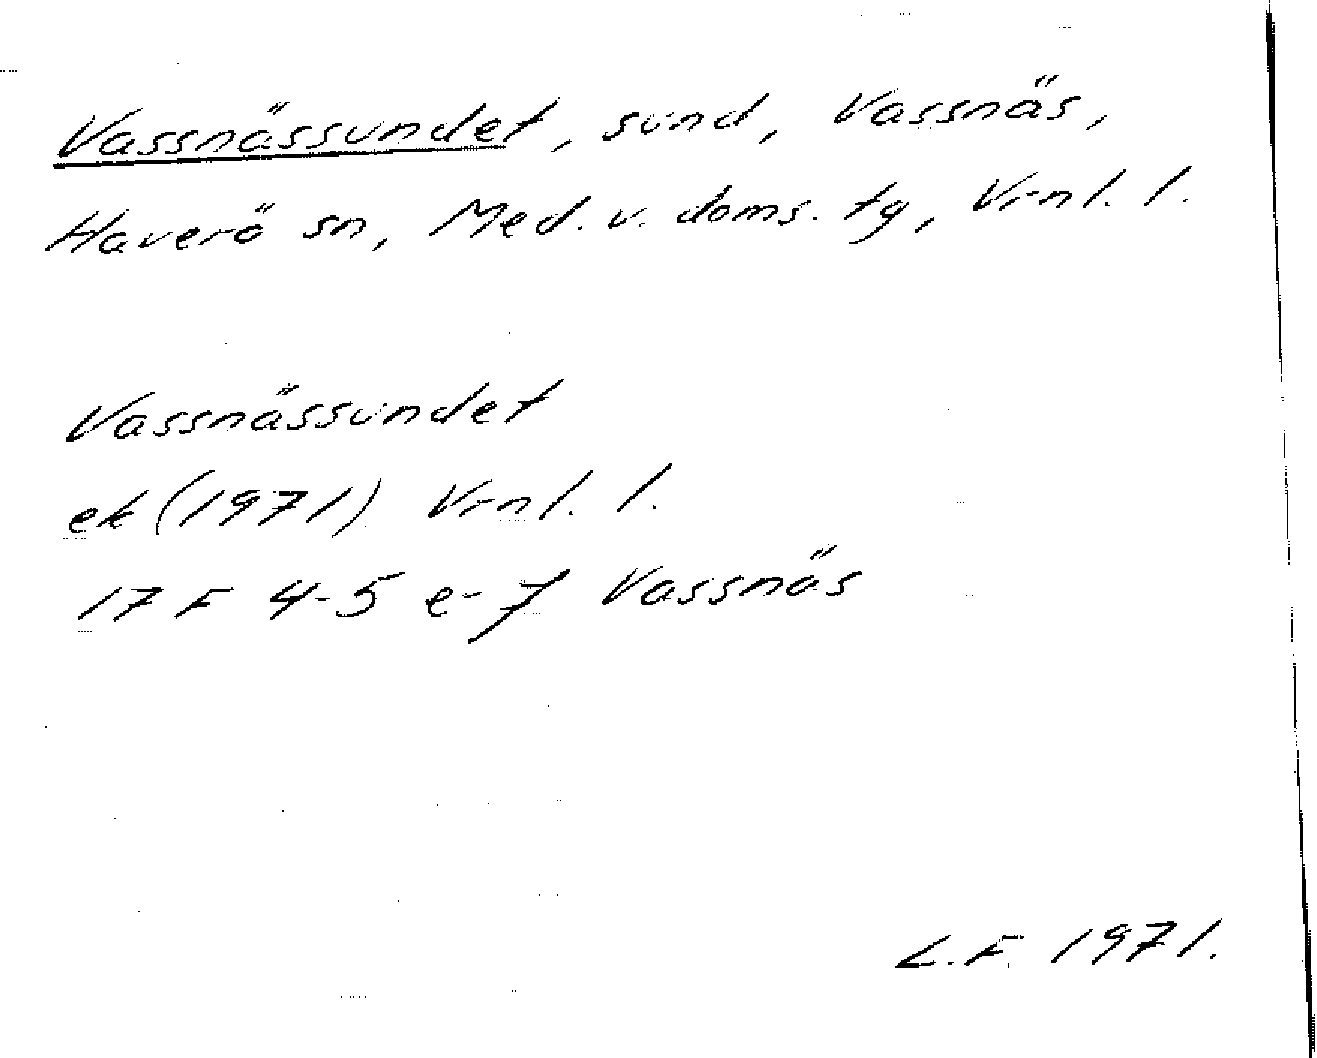 Vassnässundet, sund, Vassnäs,
Haverö sn, Med. v. doms. tg, Vrnl. l.
Vassnässundet
ek (1971) Vrnl. l.
17 F 4-5 e-f Vassnäs
L.F. 1971.